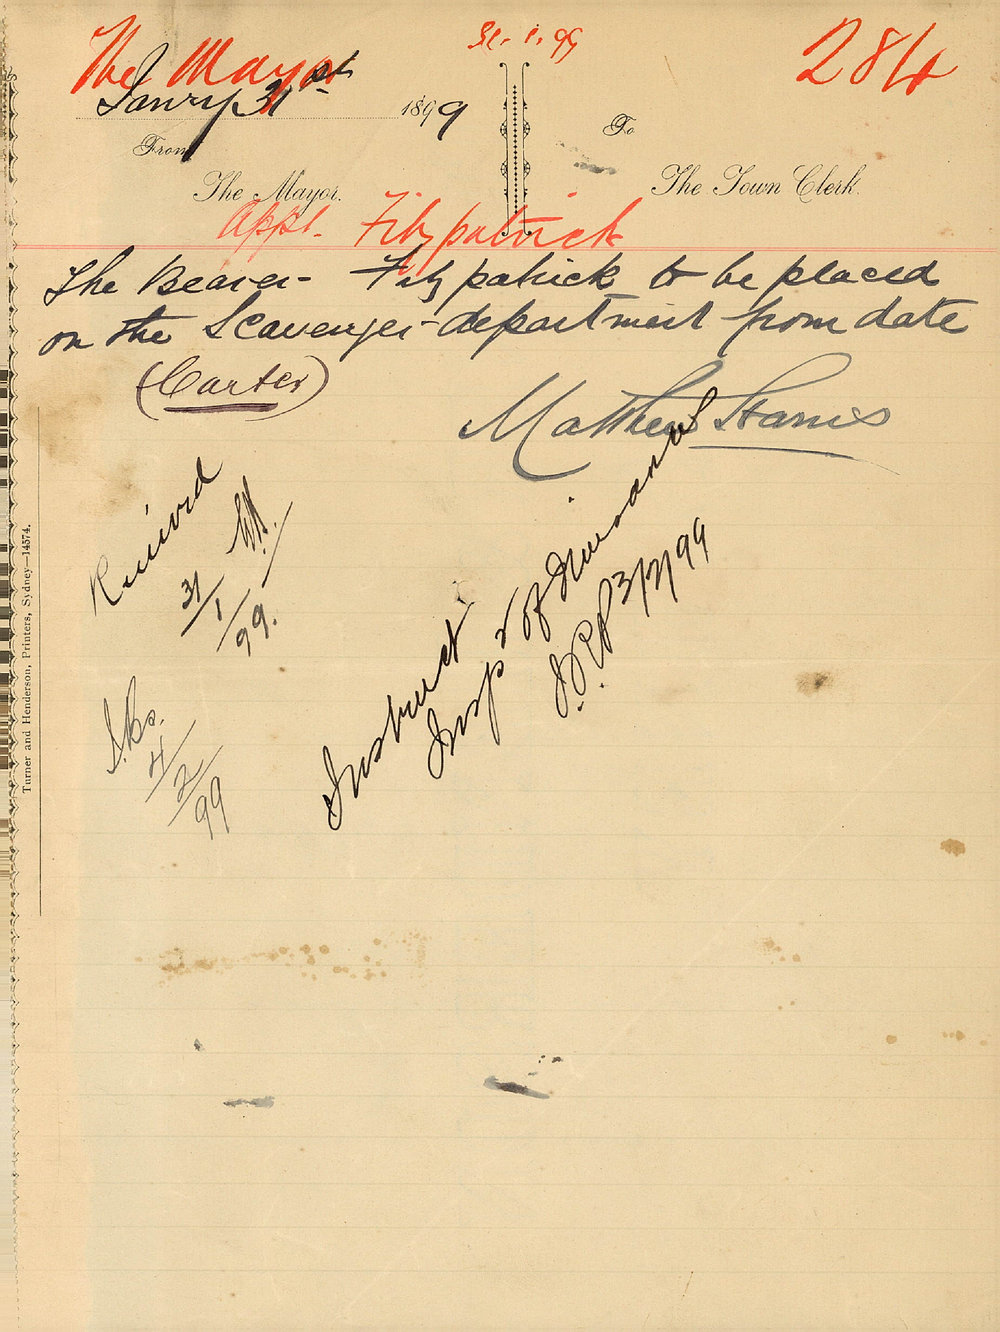 The Mayor
31.1.99
284
Janry 31st 1899
From
To
The Mayor.
The Town Clerk.
Appt. Fitzpatrick
The Bearer - Fitzpatrick to be placed
on the Scavenger department from date
(Carter)
Matthew Harris
Received
31/1/99.
Instruct
Inspr of Nuisances
3/2/99
4/2/99
Turner and Henderson, Printers, Sydney—14574.